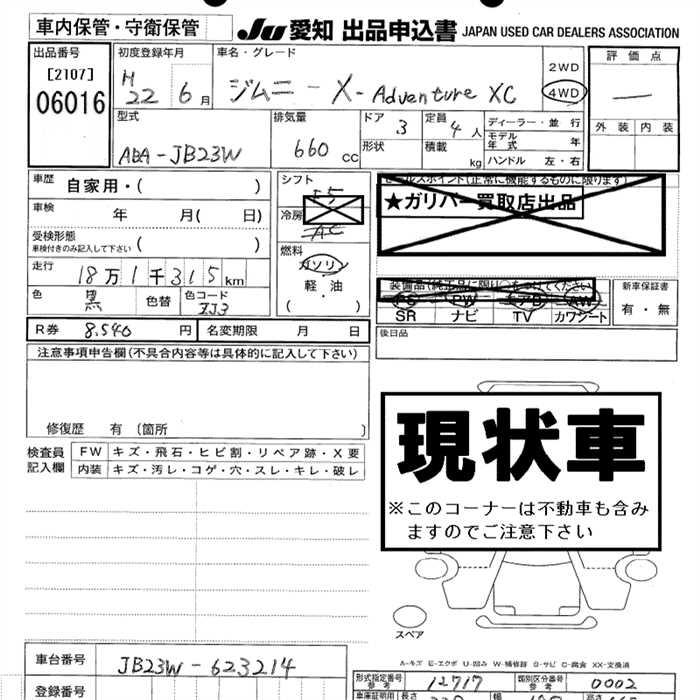 車内保管・守衛保管
JU 愛知 出品申込書 JAPAN USED CAR DEALERS ASSOCIATION
出品番号
[2107]
06016
初度登録年月
H 22 6月
車名・グレード
ジムニー X-Adventure XC
2WD
4WD
評価点
—
外装 内装
型式
ABA-JB23W
排気量
660 cc
ドア 3
形状
定員 4人
積載 kg
ディーラー・並行
モデル年式 年
ハンドル 左・右
車歴 自家用・( )
車検 年 月( 日)
受検形態
車検付きのみ記入して下さい ( )
走行 18万1千315km
色 黒 色替 色コード ZJ3
シフト
冷房 AC
燃料
ガソリン
軽・油
( )
セールスポイント(正常に機能するものに限ります)
★ガリバー買取店出品
装備品(純正品に限り○をつけてください)
PS PW エアB AW
SR ナビ TV カワシート
新車保証書
有・無
R券 8,540 円 名変期限 月 日
後日品
注意事項申告欄(不具合内容等は具体的に記入して下さい)
修復歴 有 (箇所 )
検査員記入欄
FW キズ・飛石・ヒビ割・リペア跡・X要
内装 キズ・汚レ・コゲ・穴・スレ・キレ・破レ
現状車
※このコーナーは不動車も含み
ますのでご注意下さい
スペア
A-キズ E-エクボ U-凹み W-補修跡 S-サビ C-腐食 XX-交換済
車台番号 JB23W-623214
登録番号
形式指定番号 参考 12717
類別区分番号 参考 0002
車庫証明用 長さ 幅 高さ